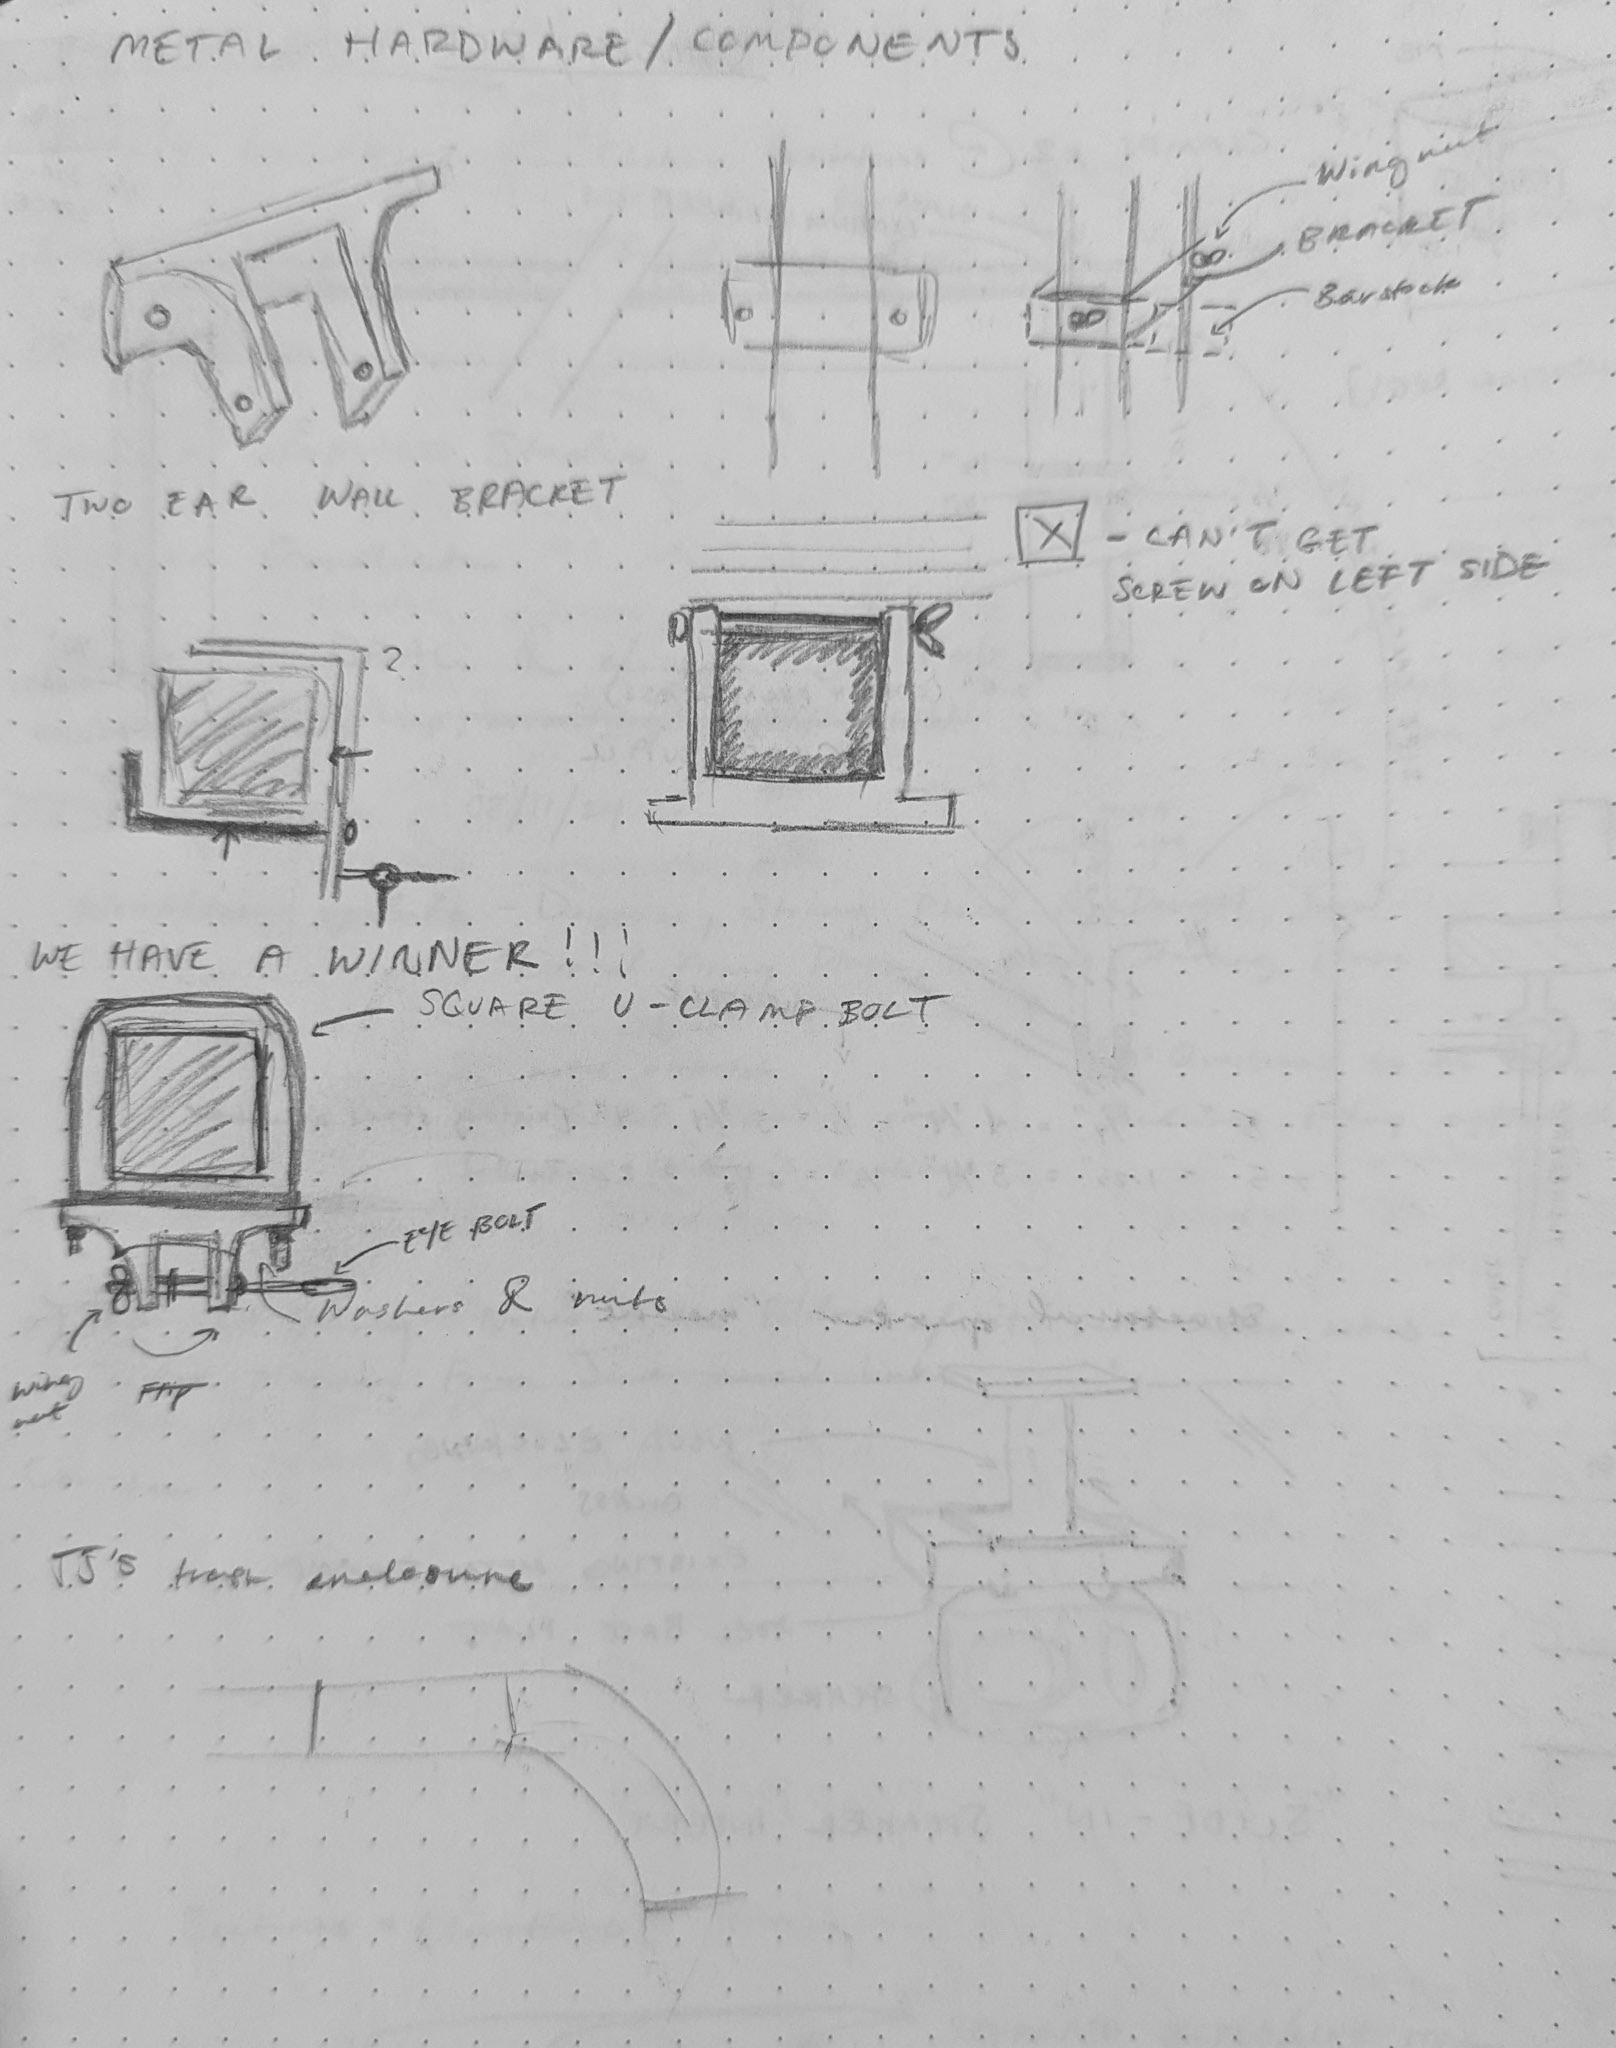 METAL HARDWARE/COMPONENTS
Wing nut
BRACKET
Barstock
TWO EAR WALL BRACKET
X - CAN'T GET
SCREW ON LEFT SIDE
?
WE HAVE A WINNER!!!
SQUARE U-CLAMP BOLT
EYE BOLT
Washers & nuts
wing
nut
TJ's trash enclosure